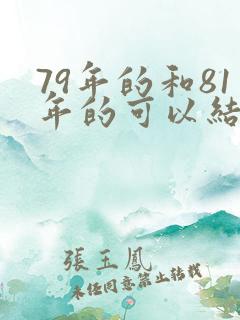 79年的和81
年的可以結
張玉鳳
未经同意禁止转载